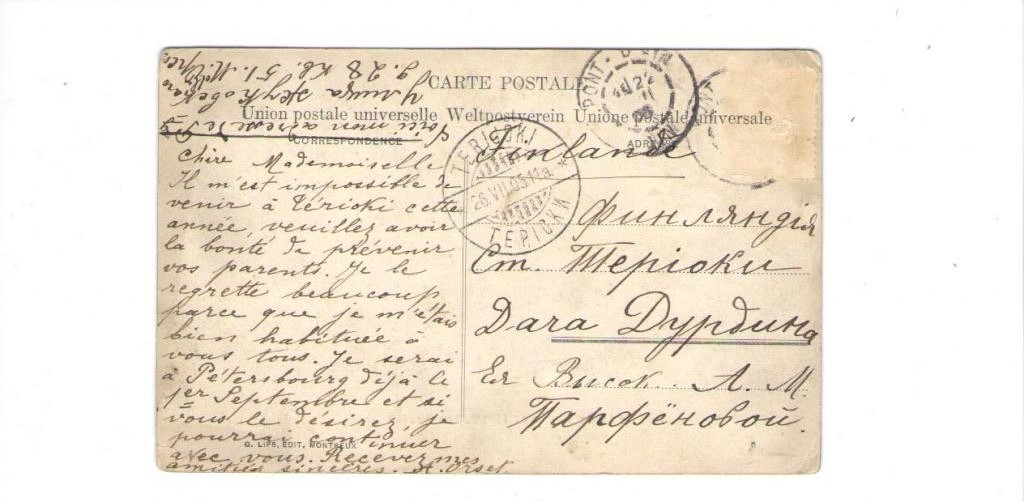 CARTE POSTALE
Union postale universelle Weltpostverein Unione postale universale
CORRESPONDENCE
ADRESSE
Chère Mademoiselle
Il m'est impossible de
venir à Térioki cette
année, veuillez avoir
la bonté de prévenir
vos parents. Je le
regrette beaucoup
parce que je m'étais
bien habituée à
vous tous. Je serai
à Pétersbourg déjà le
1er Septembre et si
vous le désirez, je
pourrai continuer
avec vous. Recevez mes
amitiés sincères. A. Orset.
Voici mon adresse de
Улица
д. 28 кв. 51.
G. LIPS, EDIT. MONTREUX
PONT-D'AIN
TERIJOKI
26.VII.05.11a.
ТЕРІОКИ
Finlande
Финляндія
Ст. Теріоки
Дача Дурдина
Ея Высок. А. М.
Парфёновой.